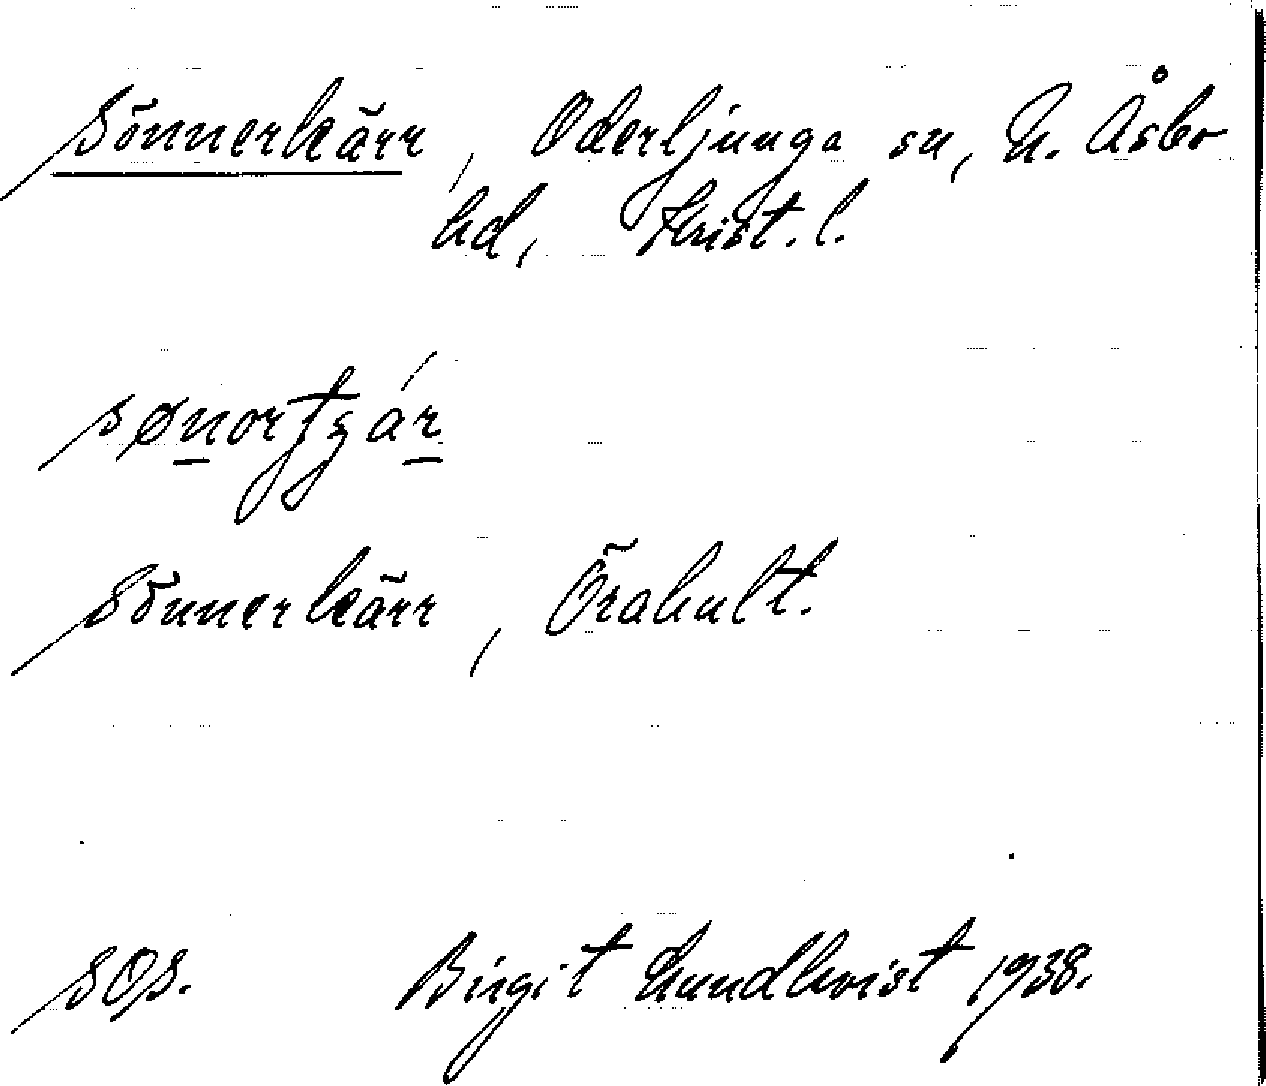 Sönnerkärr, Oderljunga sn, N. Åsbo
hd, Krist. l.
Sönnerkärr, Örahult.
SOS. Birgit Lundkvist 1938.